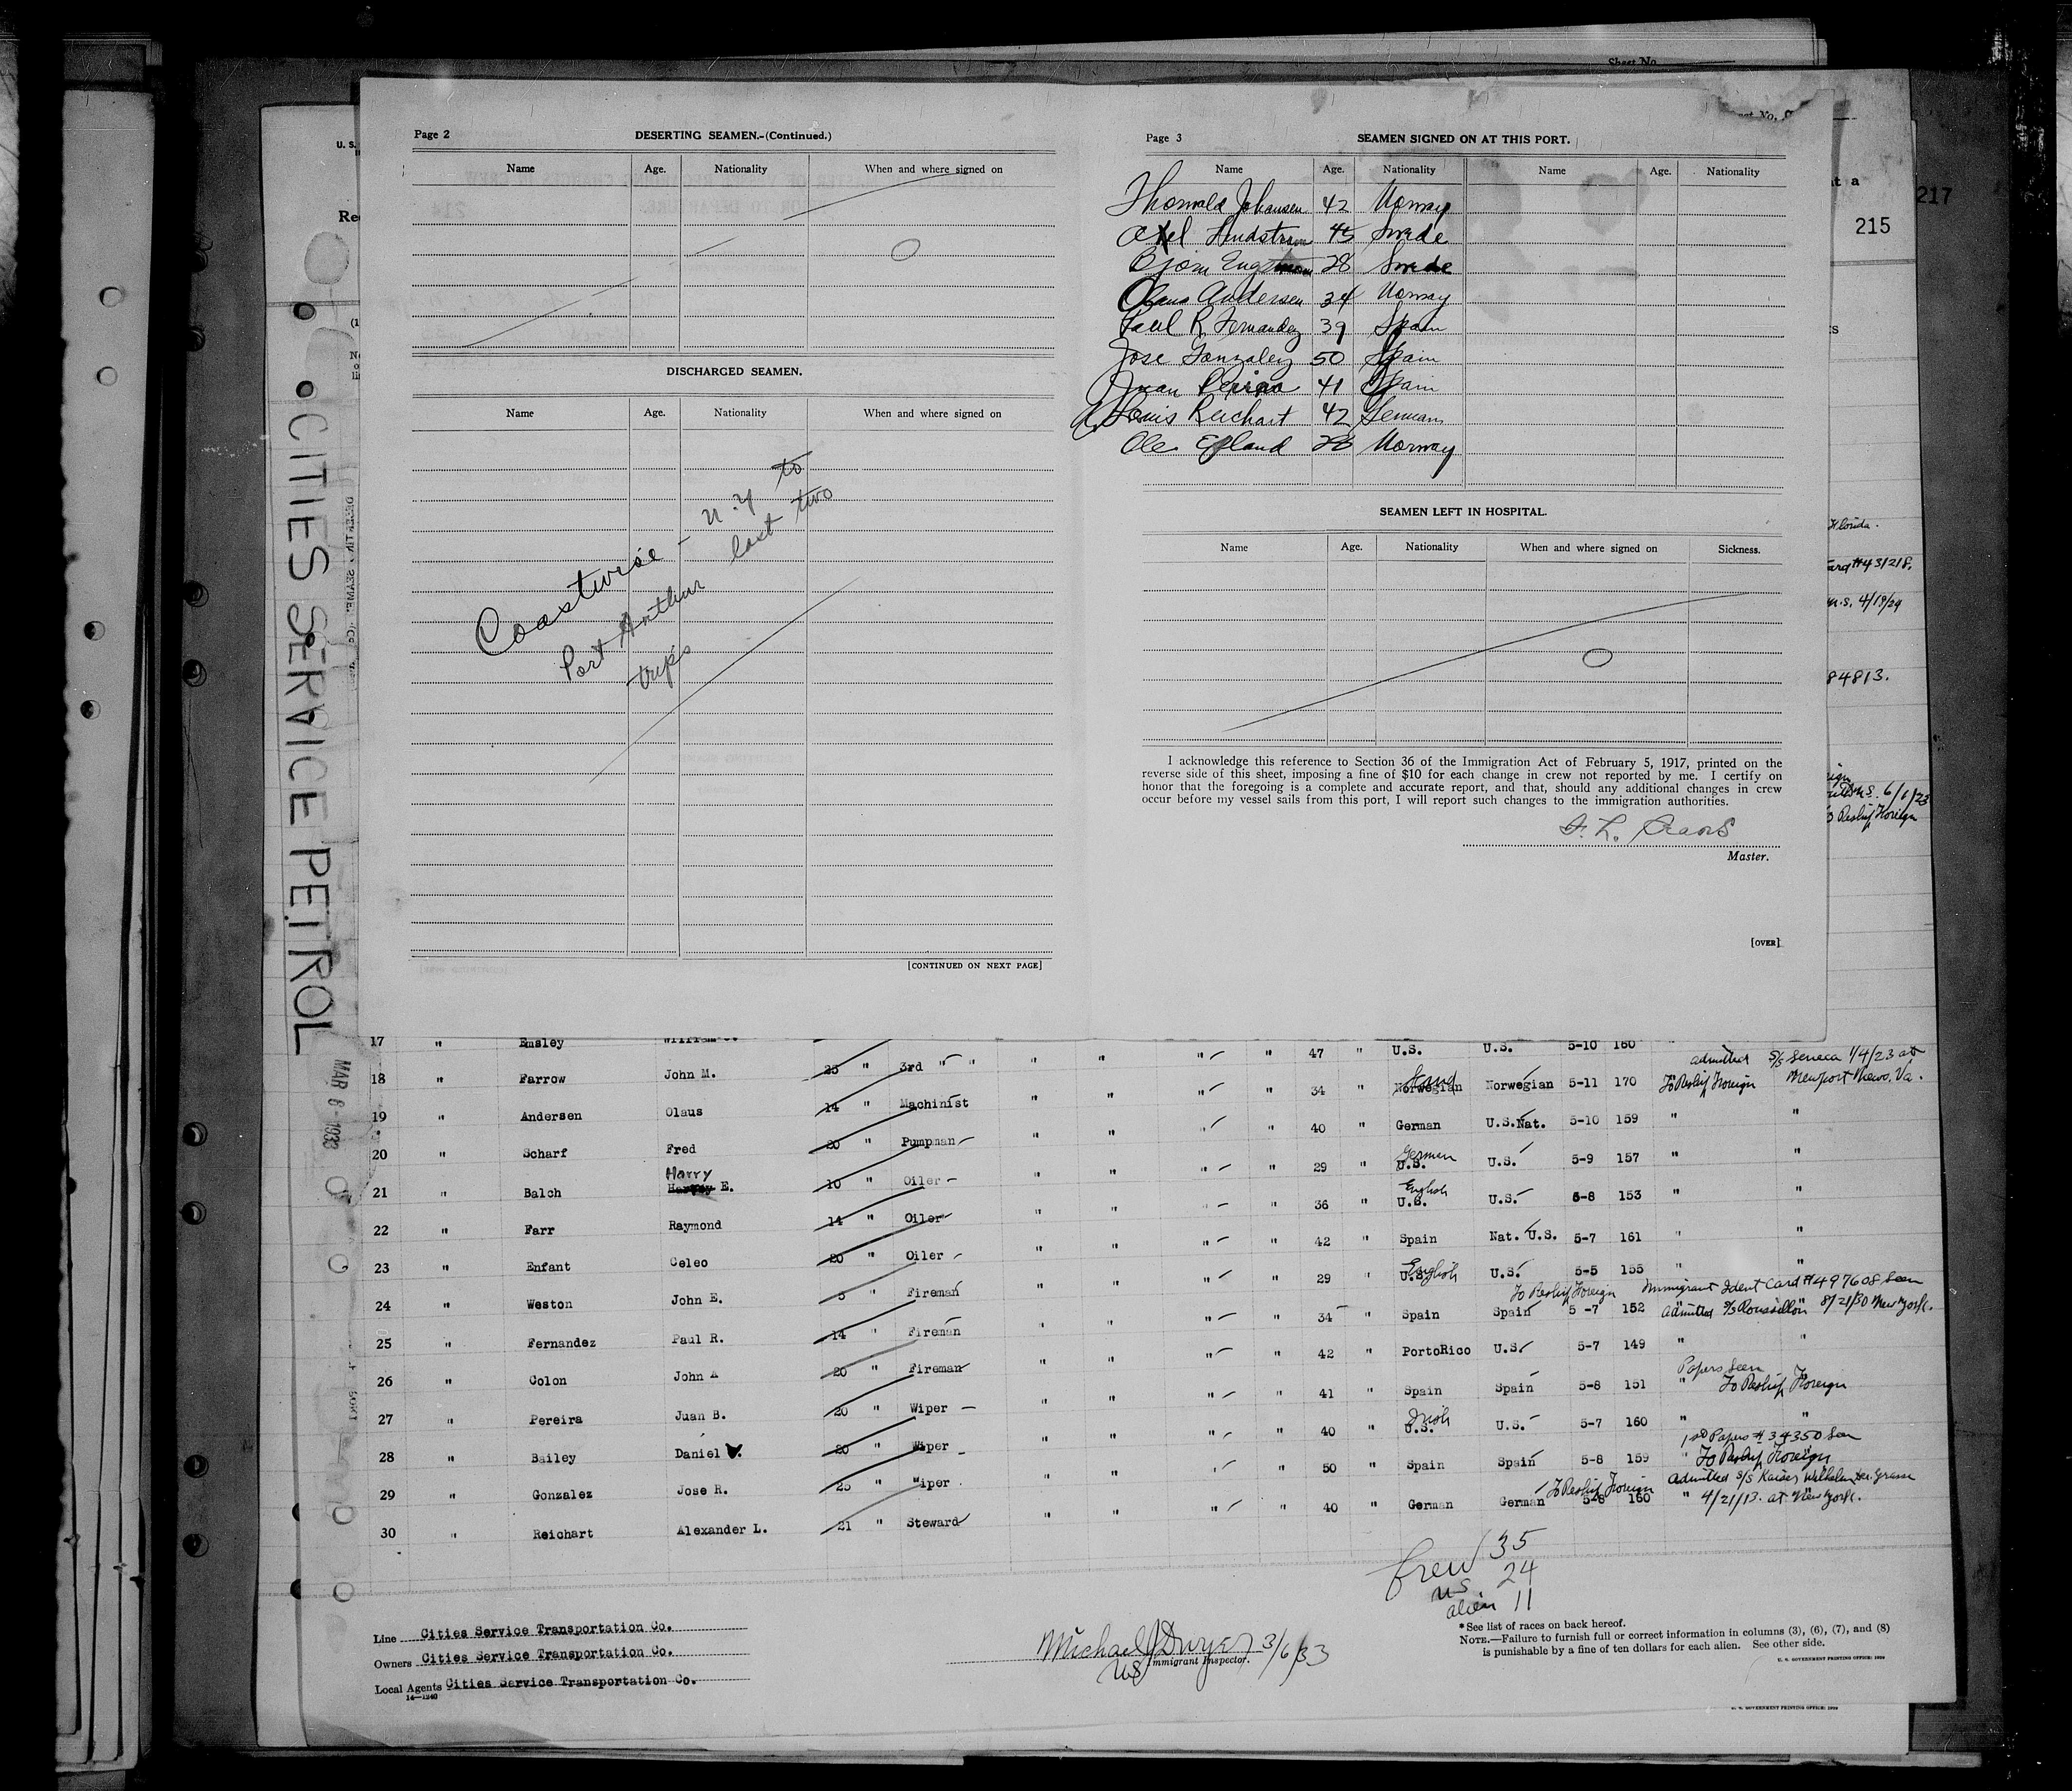 Sheet No.
217
215
CITIES SERVICE PETROL
MAR 6 - 1933
Page 2
DESERTING SEAMEN.-(Continued.)
Name Age. Nationality When and where signed on
O
DISCHARGED SEAMEN.
Name Age. Nationality When and where signed on
Coastwise - N.Y to
Port Arthur last two
trips
[CONTINUED ON NEXT PAGE]
Page 3
SEAMEN SIGNED ON AT THIS PORT.
Name Age. Nationality Name Age. Nationality
Thorwald Johansen 42 Norway
Axel Lindstrom 45 Swede
Bjorn 28 Swede
Olaus Andersen 34 Norway
Paul R Fernandez 39 Spain
Jose Gonzalez 50 Spain
Juan 41 Spain
Louis Reichart 42 German
Ole 28 Norway
SEAMEN LEFT IN HOSPITAL.
Name Age. Nationality When and where signed on Sickness.
O
I acknowledge this reference to Section 36 of the Immigration Act of February 5, 1917, printed on the
reverse side of this sheet, imposing a fine of $10 for each change in crew not reported by me. I certify on
honor that the foregoing is a complete and accurate report, and that, should any additional changes in crew
occur before my vessel sails from this port, I will report such changes to the immigration authorities.
Master.
[OVER]
Florida.
#431218.
4/19/29
84813.
6/1/23
Reship Foreign
17 " Emsley William
18 " Farrow John M. 25 " 3rd " " " " " " 47 " U.S. U.S. 5-10 160
19 " Andersen Olaus 14 " Machinist " " " " 34 " Norwegian Norwegian 5-11 170 To Reship Foreign admitted S/S Seneca 1/4/23 at Newport News, Va.
20 " Scharf Fred 20 " Pumpman " " " " 40 " German U.S.Nat. 5-10 159 " "
21 " Balch Harry Harvey E. 10 " Oiler " " " " 29 " German U.S. U.S. 5-9 157 " "
22 " Farr Raymond 14 " Oiler " " " " 36 " English U.S. U.S. 5-8 153 " "
23 " Enfant Celeo 20 " Oiler " " " " 42 " Spain Nat. U.S. 5-7 161 " "
24 " Weston John E. 5 " Fireman " " " " 29 " English U.S. U.S. 5-5 155 " "
25 " Fernandez Paul R. 14 " Fireman " " " " 34 " Spain Spain 5-7 152 To Reship Foreign Immigrant Ident Card #497608 Seen Admitted S/S Roussillon 8/21/30 New York.
26 " Colon John A 20 " Fireman " " " " 42 " PortoRico U.S. 5-7 149 " "
27 " Pereira Juan B. 20 " Wiper " " " " 41 " Spain Spain 5-8 151 Papers Seen " To Reship Foreign
28 " Bailey Daniel 20 " Wiper " " " " 40 " Irish U.S. U.S. 5-7 160 " "
29 " Gonzalez Jose R. 25 " Wiper " " " " 50 " Spain Spain 5-8 159 1st Papers #34350 Seen " To Reship Foreign
30 " Reichart Alexander L. 21 " Steward " " " " 40 " German German 5-8 160 To Reship Foreign Admitted S/S Kaiser Wilhelm der Grosse " 4/21/13. at New York.
Crew 35
US 24
alien 11
Line Cities Service Transportation Co.
Owners Cities Service Transportation Co.
Local Agents Cities Service Transportation Co.
14-1240
Michael J Dwyer 3/6/33
US Immigrant Inspector.
*See list of races on back hereof.
NOTE.—Failure to furnish full or correct information in columns (3), (6), (7), and (8)
is punishable by a fine of ten dollars for each alien. See other side.
U. S. GOVERNMENT PRINTING OFFICE: 1929